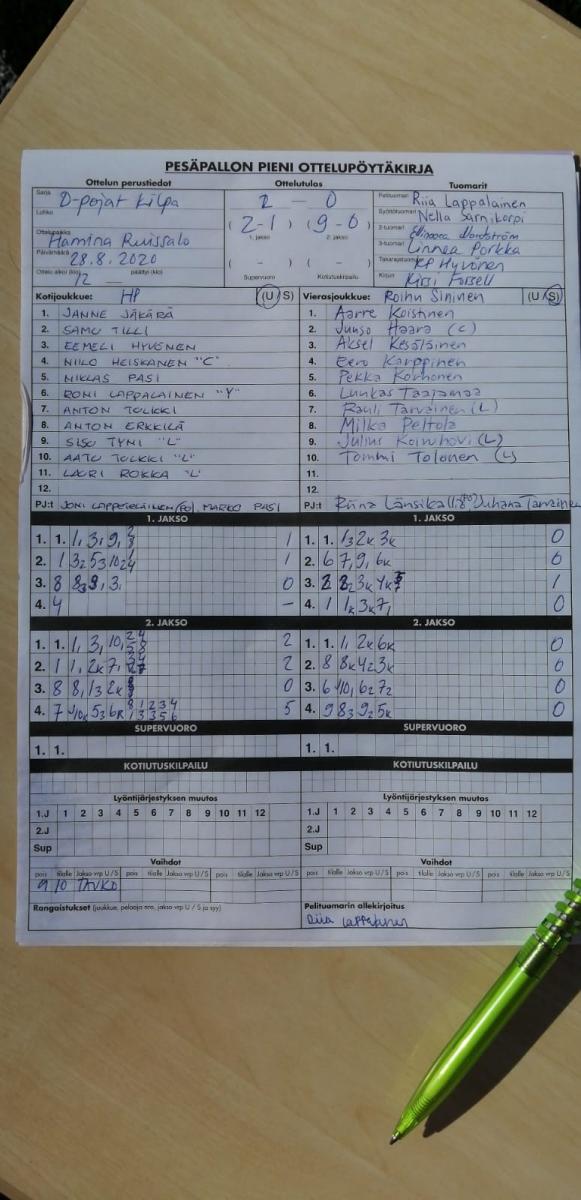 PESÄPALLON PIENI OTTELUPÖYTÄKIRJA
Ottelun perustiedot Ottelutulos Tuomarit
Sarja D-pojat kilpa
Lohko
Ottelupaikka Hamina Ruissalo
Päivämäärä 28.8.2020
Ottelu alkoi (klo) 12 päättyi (klo)
2 – 0
(2-1) (9-0)
1. jakso 2. jakso
( - ) ( - )
Supervuoro Kotiutuskilpailu
Pelituomari Riia Lappalainen
Syöttötuomari Nella Sarnikorpi
2-tuomari Ellinoora Nordström
3-tuomari Linnea Porkka
Takarajatuomari KP Hyvönen
Kirjuri Kirsi Forsell
Kotijoukkue: HP (U/S)
1. JANNE JÄKÄRÄ
2. SAMU TILLI
3. EEMELI HYVÖNEN
4. NIILO HEISKANEN "C"
5. NIKLAS PASI
6. RONI LAPPALAINEN "Y"
7. ANTON TULKKI
8. ANTON ERKKILÄ
9. SISU TYNI "L"
10. AATU TULKKI "L"
11. LAURI ROKKA "L"
12.
PJ:t JONI LAPPETELÄINEN (PO), MARKO PASI
Vierasjoukkue: Roihu Sininen (U/S)
1. Aarre Koistinen
2. Juuso Haara (C)
3. Aksel Kesäläinen
4. Eero Karppinen
5. Pekka Korhonen
6. Luukas Taajamaa
7. Rauli Tarvainen (L)
8. Milka Peltola
9. Julius Koivuhovi (L)
10. Tommi Tolonen (L)
11.
12.
PJ:t Riina Länsikallio (PO) Juhana Tarvainen
1. JAKSO
1. 1. 1, 3, 9, 1
2. 1 3₂ 5₃ 10₂ 1
3. 8 8₃ 9, 3, 0
4. 4 –
2. JAKSO
1. 1. 1, 3, 10, 2
2. 1 1, 2k 7, 2
3. 8 8, 1₃ 2k 0
4. 7 10k 5₃ 6k 5
SUPERVUORO
1. 1.
KOTIUTUSKILPAILU
Lyöntijärjestyksen muutos
1.J 1 2 3 4 5 6 7 8 9 10 11 12
2.J
Sup
Vaihdot
pois tilalle Jakso vrp U/S pois tilalle Jakso vrp U/S pois tilalle Jakso vrp U/S
9 10
Rangaistukset (joukkue, pelaaja nro, jakso vrp U / S ja syy)
1. JAKSO
1. 1. 1₃ 2k 3k 0
2. 6 7, 9, 6k 0
3. 2 2₂ 3k 4k 1
4. 1 1k 3k 7, 0
2. JAKSO
1. 1. 1, 2k 6k 0
2. 8 8k 4₂ 3k 0
3. 6 10, 6₂ 7₂ 0
4. 9 8₃ 9₂ 5k 0
SUPERVUORO
1. 1.
KOTIUTUSKILPAILU
Lyöntijärjestyksen muutos
1.J 1 2 3 4 5 6 7 8 9 10 11 12
2.J
Sup
Vaihdot
pois tilalle Jakso vrp U/S pois tilalle Jakso vrp U/S pois tilalle Jakso vrp U/S
Pelituomarin allekirjoitus
Riia Lappalainen